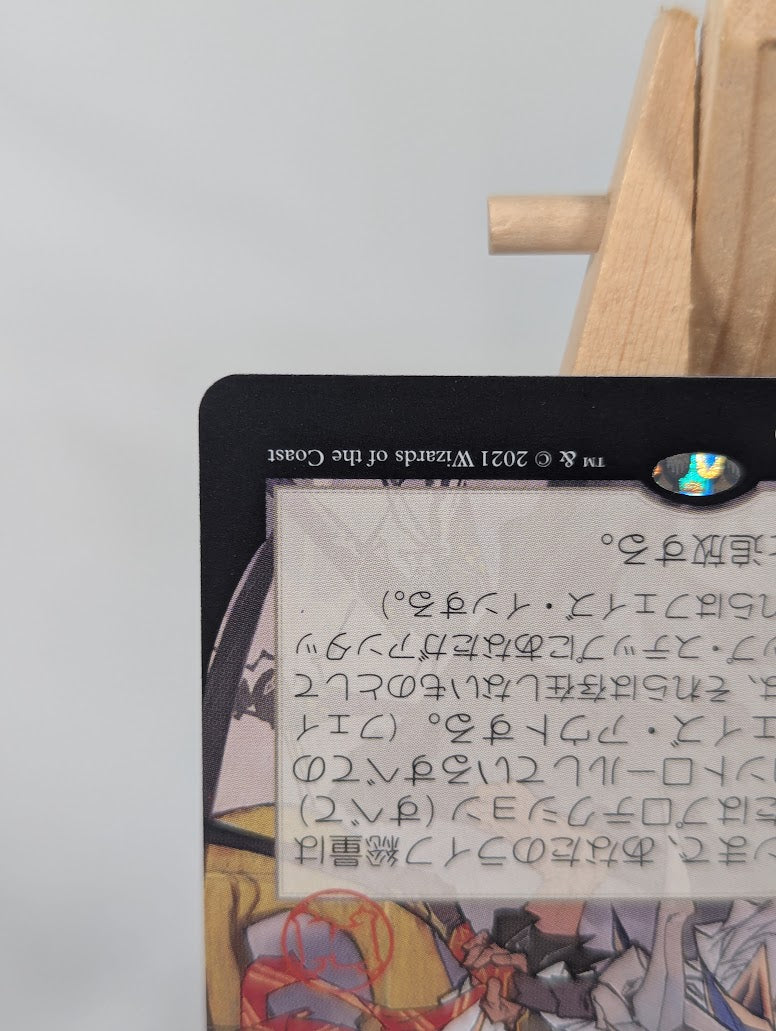 ンまで、あなたのライフ総量は
たはプロテクション（すべて）
ントロールしているすべての
ェイズ・アウトする。（フェイ
は、それらは存在しないものとして
ップ・ステップにあなたがアンタッ
れらはフェイズ・インする。）
追放する。
™ & © 2021 Wizards of the Coast